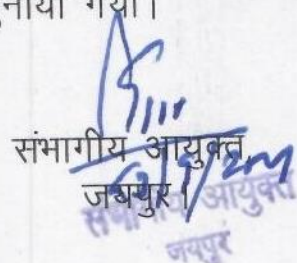 सुनाया गया।
संभागीय आयुक्त,
जयपुर।
संभागीय आयुक्त
जयपुर